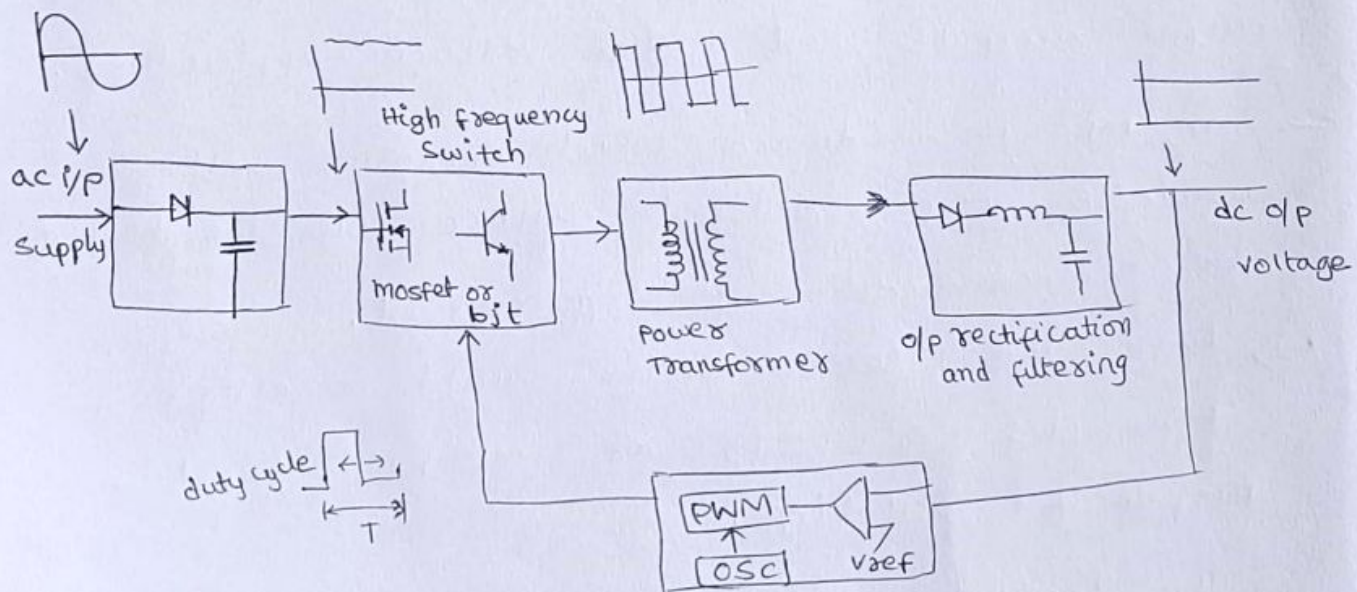 High frequency
Switch
ac i/p
Supply
mosfet or
bjt
Power
Transformer
o/p rectification
and filtering
dc o/p
voltage
duty cycle
T
PWM
OSC
Vref